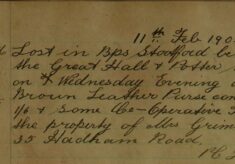 11th Feb 190
Lost in Bps Stortford be
the Great Hall & Potter
on Wednesday Evening a
Brown Leather Purse con
1/6 & some Co-Operative
the property of Mrs Grim
35 Hadham Road,